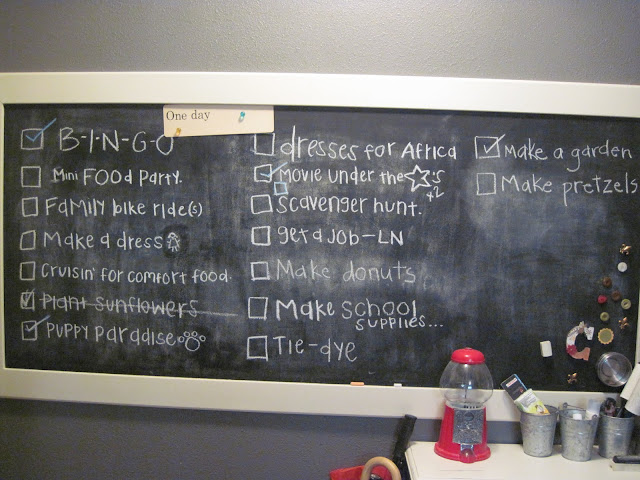 One day
B-I-N-G-O
Mini FOOD Party.
FaMILY bike ride(s)
Make a dress
Cruisin' for comfort food.
Plant sunflowers
PUPPY Paradise
dresses for Africa
Movie under the ☆'s
x2
Scavenger hunt.
get a JOB-LN
Make donuts
Make School
SUPPLIES...
TIe-dye
Make a garden
Make pretzels
C